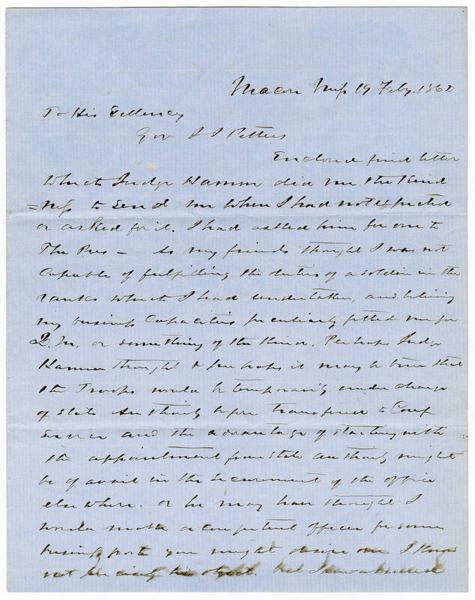 Macon Miss 19 Feby. 1862
To His Exllency
Gov J J Pettus
Enclosed find letter
which Judge Hamm did me the kind
=ness to send me when I had not expected
or asked for it. I had asked him for one to
The Pres — as my friends thought I was not
capable of fulfilling the duties of a soldier in the
ranks which I had undertaken, and believing
my business capacities peculiarly fitted me for
Q. M. or something of the kind. Perhaps Judge
Hamm thought &
it may be time that
the Troops would be temporarily under charge
of State Authority before transfered to Conf
service and the advantage of starting with
the appointment from State authority might
be of avail in the securement of the office
elsewhere. or he may have thought I
would make a competent officer for some
business post you might desire one I know
not precisely his object. but I